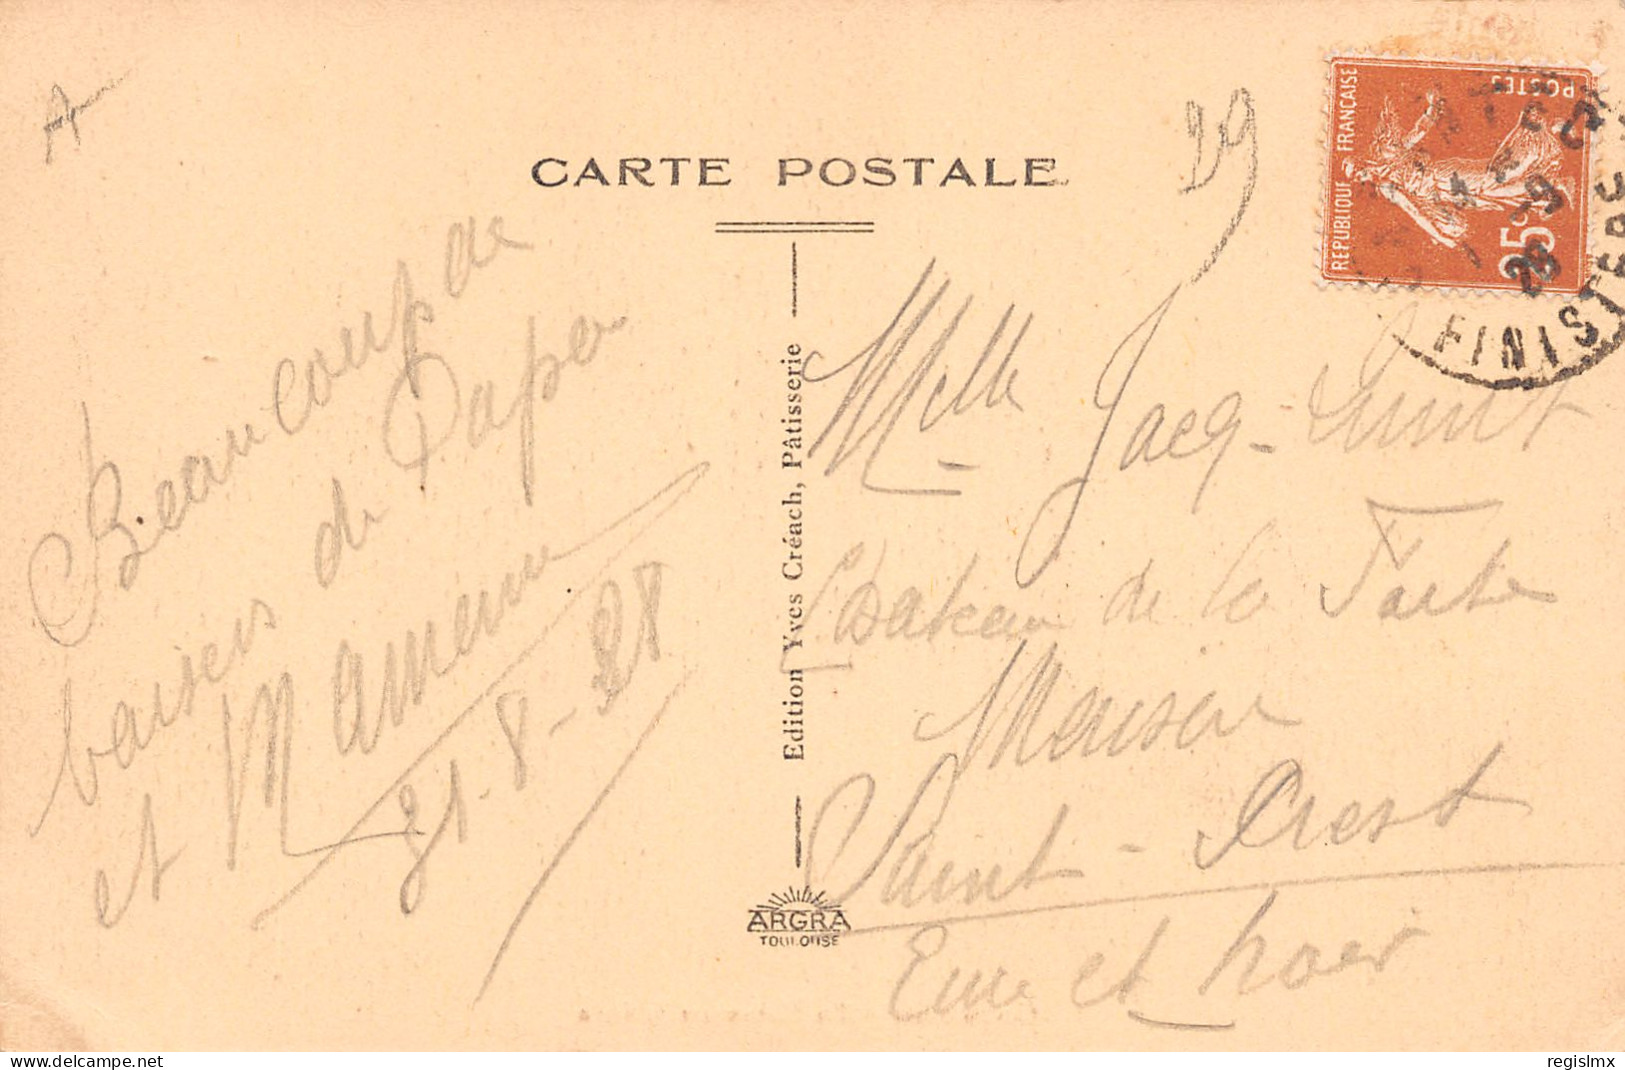 A
29
CARTE POSTALE
REPUBLIQUE FRANÇAISE
POSTES
25c
FINISTERE
Beaucoup de
baisers de Papa
et Maman
31-8-28
Edition Yves Créach, Pâtisserie
ARGRA
TOULOUSE
Melle Jacq-
Chateau de la
Saint-Prest
Eure et Loir
www.delcampe.net
regislmx